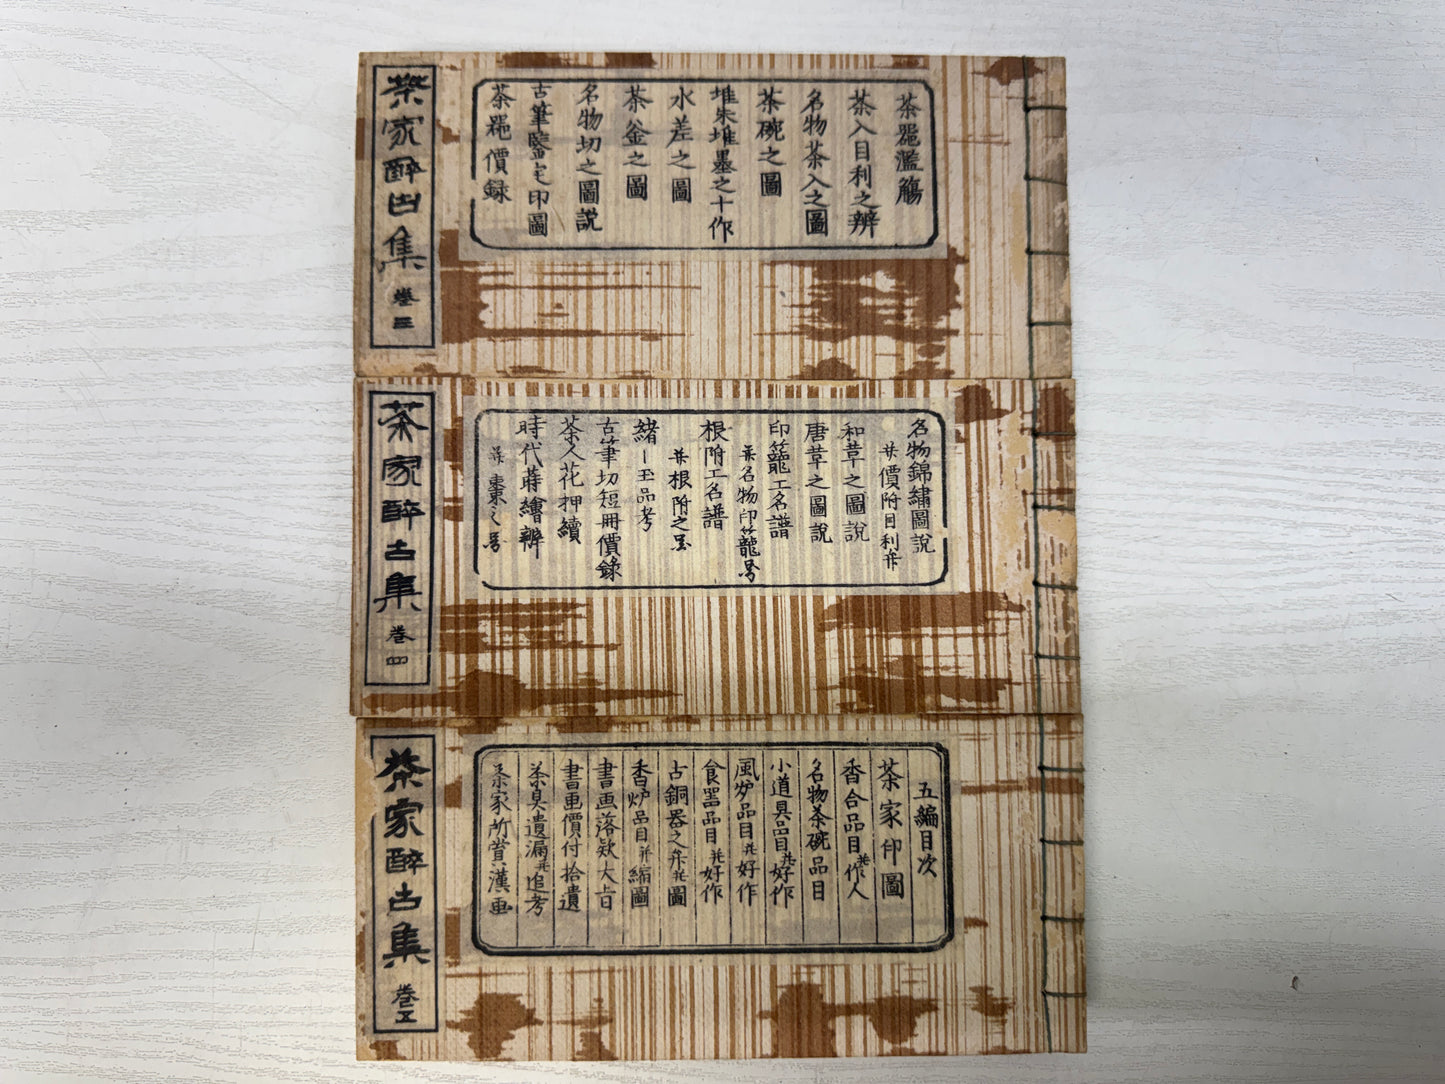 茶家酔古集
巻三
茶器濫觴
茶入目利之辨
名物茶入之圖
茶碗之圖
堆朱堆墨之十作
水差之圖
茶釜之圖
名物切之圖説
古筆鑒定印圖
茶器價録
茶家酔古集
巻四
名物錦繡圖説
并價附目利并
和草之圖説
唐草之圖説
印籠工名譜
并名物印籠号
根附工名譜
并根附之圣
緒〆玉品考
古筆切短冊價錄
茶人花押續
時代蒔繪辨
并棗之号
茶家酔古集
巻五
五編目次
茶家印圖
香合品目并作人
名物茶碗品目
小道具品目并好作
風炉品目并好作
食器品目并好作
古銅器之弁并圖
香炉品目并縮圖
書画落款大旨
書画價付拾遺
茶具遺漏并追考
茶家所賞漢画